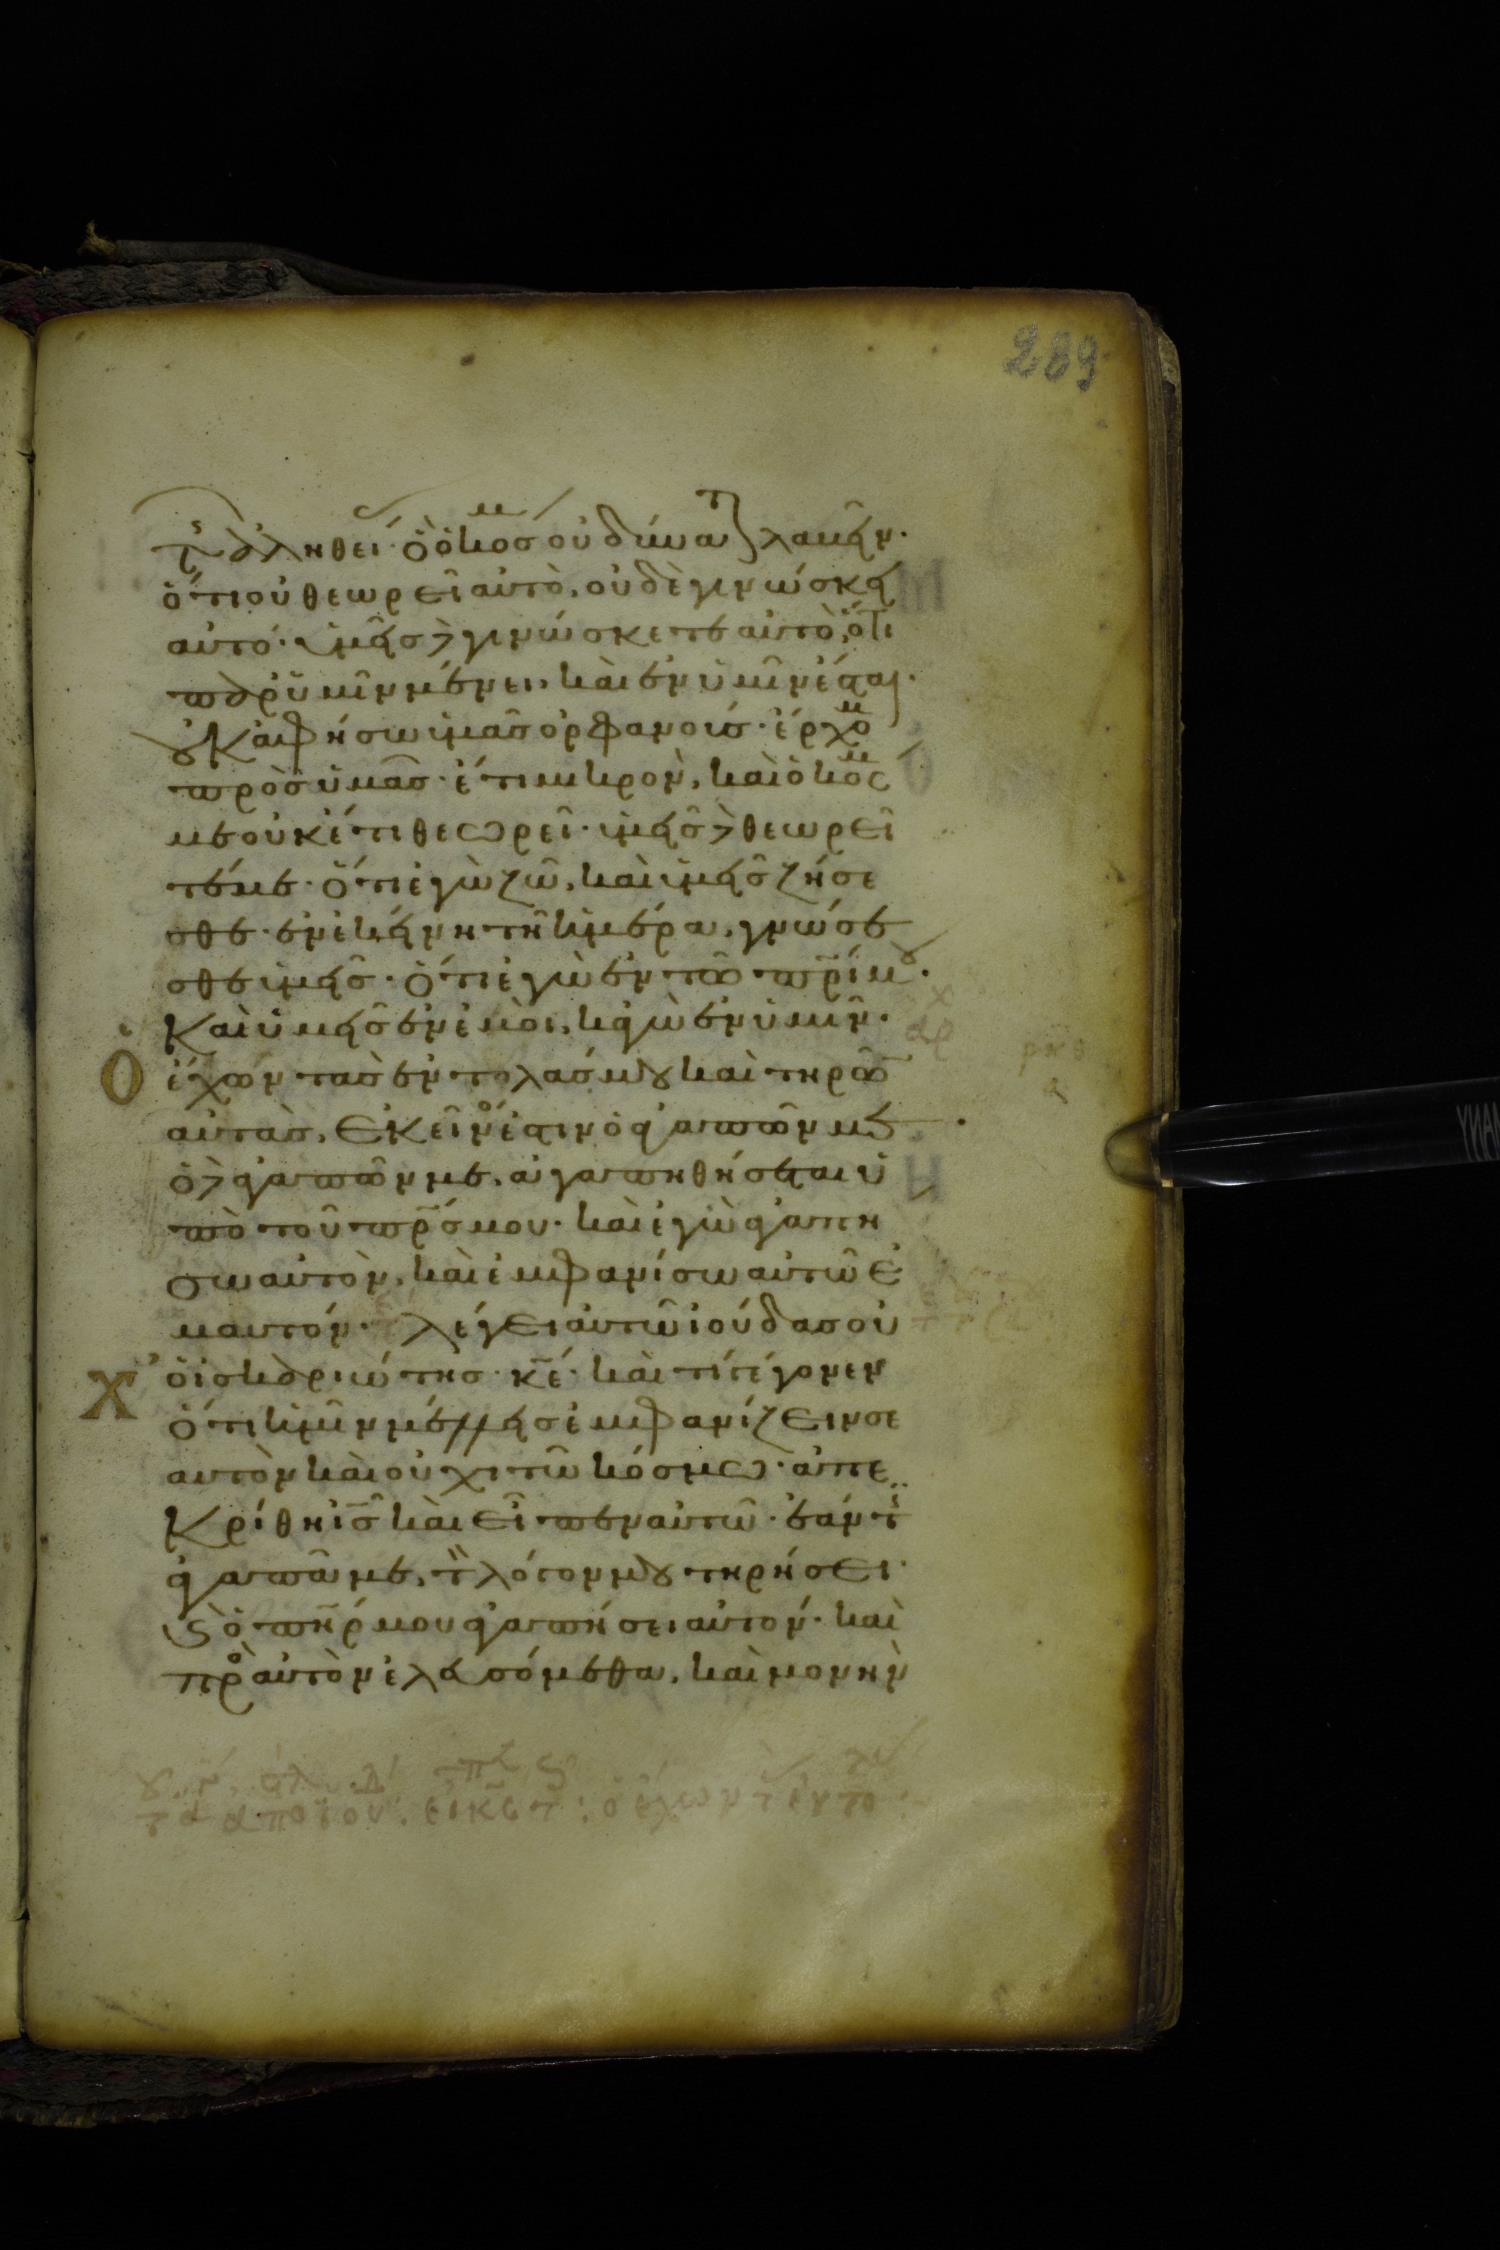 289
τῆς ἀληθεί· ὃ ὁ κοσμ οὐ δύναται λαβεῖν·
ὅτι οὐ θεωρεῖ αὐτὸ, οὐδὲ γινώσκει
αὐτό· ὑμεῖς δὲ γινώσκετε αὐτὸ, ὅτι
παρ ὑμῖν μένει, καὶ ἐν ὑμῖν ἔσται·
οὐκ ἀφήσω ὑμᾶς ὀρφανούς· ἔρχομ
πρὸς ὑμᾶς· ἔτι μικρὸν, καὶ ὁ κόσμος
με οὐκ έτι θεωρεῖ· ὑμεῖς δὲ θεωρεῖ
τέ με· ὅτι ἐγὼ ζῶ, καὶ ὑμεῖς ζήσε
σθε· ἐν ἐκείνη τῆ ἡμέρα, γνώσε
σθε ὑμεῖς· ὅτι ἐγὼ ἐν τῶ πρ̅ί μου·
Καὶ ὑμεῖς ἐν ἐμοὶ, κἀγὼ ἐν ὑμῖν·
Ὁ ἔχων τὰς ἐντολάς μου καὶ τηρῶν
αὐτὰς, ἐκεῖνός ἐστιν ὁ ἀγαπῶν με·
ὁ δὲ ἀγαπῶν με, ἀγαπηθήσεται ὑ
πὸ τοῦ πρ̅ς μου· καὶ ἐγὼ ἀγαπη
σω αὐτὸν, καὶ ἐμφανίσω αὐτῶ ἐ
μαυτόν· λέγει αὐτῶ ἰούδας οὐ
χ ὁ ἰσκαριώτης· κ̅ε· καὶ τί γέγονεν
ὅτι ἡμῖν μέλλεις ἐμφανίζειν σε
αυτὸν καὶ οὐχι τῶ κόσμω· ἀπε
Κρίθη ἰ̅ς καὶ εῖπεν αὐτῶ· ἐάν τις
ἀγαπᾶ με, τὸν λόγον μου τηρήσει·
καὶ ὁ πη̅ρ μου ἀγαπήσει αὐτόν· καὶ
πρὸς αὐτὸν ἐλευσόμεθα, καὶ μονὴν